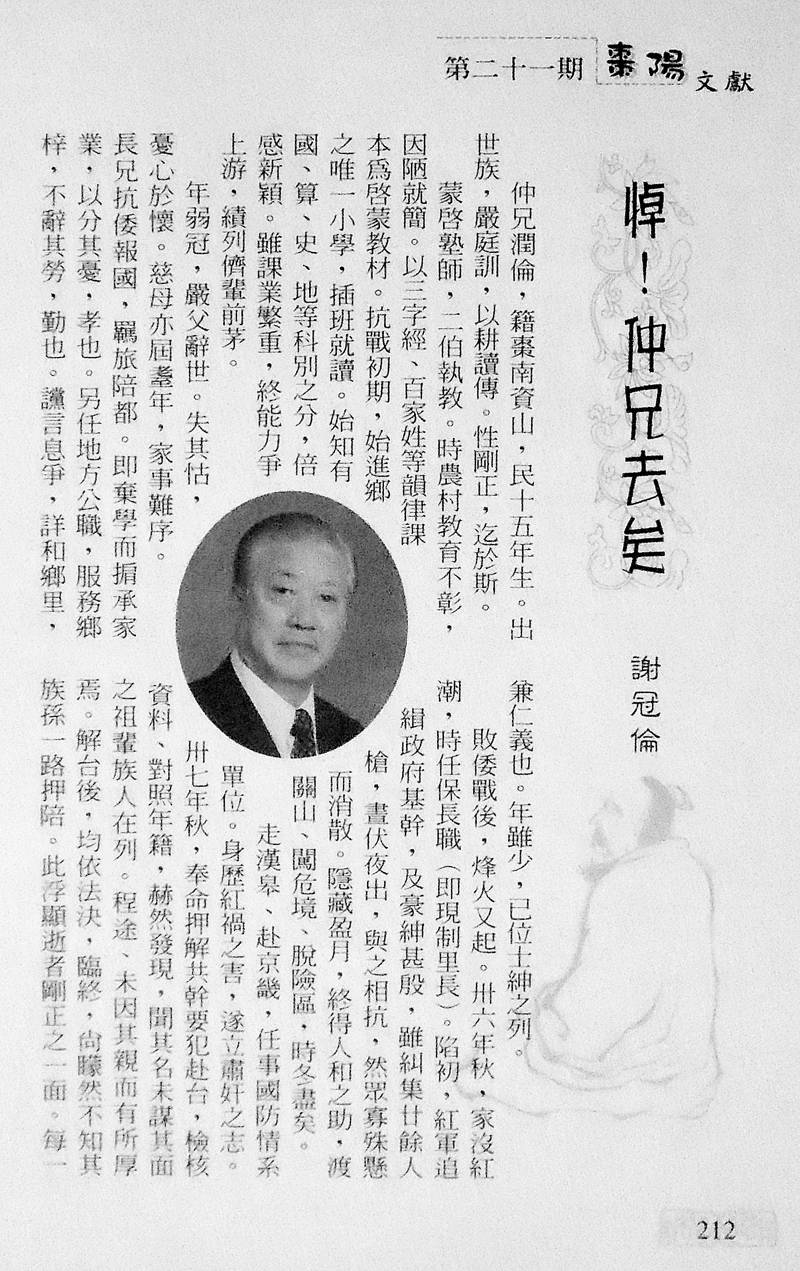 第二十一期 棗陽文獻
悼！仲兄去矣
謝冠倫
仲兄潤倫，籍棗南資山，民十五年生。出
世族，嚴庭訓，以耕讀傳。性剛正，迄於斯。
蒙啓塾師，二伯執教。時農村教育不彰，
因陋就簡。以三字經、百家姓等韻律課
本爲啓蒙教材。抗戰初期，始進鄉
之唯一小學，插班就讀。始知有
國、算、史、地等科別之分，倍
感新穎。雖課業繁重，終能力爭
上游，績列儕輩前茅。
年弱冠，嚴父辭世。失其怙，
憂心於懷。慈母亦屆耋年，家事難序。
長兄抗倭報國，羈旅陪都。即棄學而捐承家
業，以分其憂，孝也。另任地方公職，服務鄉
梓，不辭其勞，勤也。讜言息爭，詳和鄉里，
兼仁義也。年雖少，已位士紳之列。
敗倭戰後，烽火又起。卅六年秋，家沒紅
潮，時任保長職（即現制里長）。陷初，紅軍追
緝政府基幹，及豪紳甚殷，雖糾集廿餘人
槍，晝伏夜出，與之相抗，然眾寡殊懸
而消散。隱藏盈月，終得人和之助，渡
關山、闖危境、脫險區，時冬盡矣。
走漢皋、赴京畿，任事國防情系
單位。身歷紅禍之害，遂立肅奸之志。
卅七年秋，奉命押解共幹要犯赴台，檢核
資料、對照年籍，赫然發現，聞其名未謀其面
之祖輩族人在列。程途、未因其親而有所厚
焉。解台後，均依法決，臨終，尚矇然不知其
族孫一路押陪。此浮顯逝者剛正之一面。每一
212